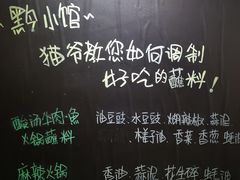 黔小馆~
猫爷教您如何调制
好吃的蘸料!
酸汤牛肉·鱼 油豆豉、水豆豉、煳辣椒、蒜泥
火锅蘸料 木姜子油、香菜、香葱、蚝油
麻辣火锅 香油、蒜泥、花生碎、蚝油